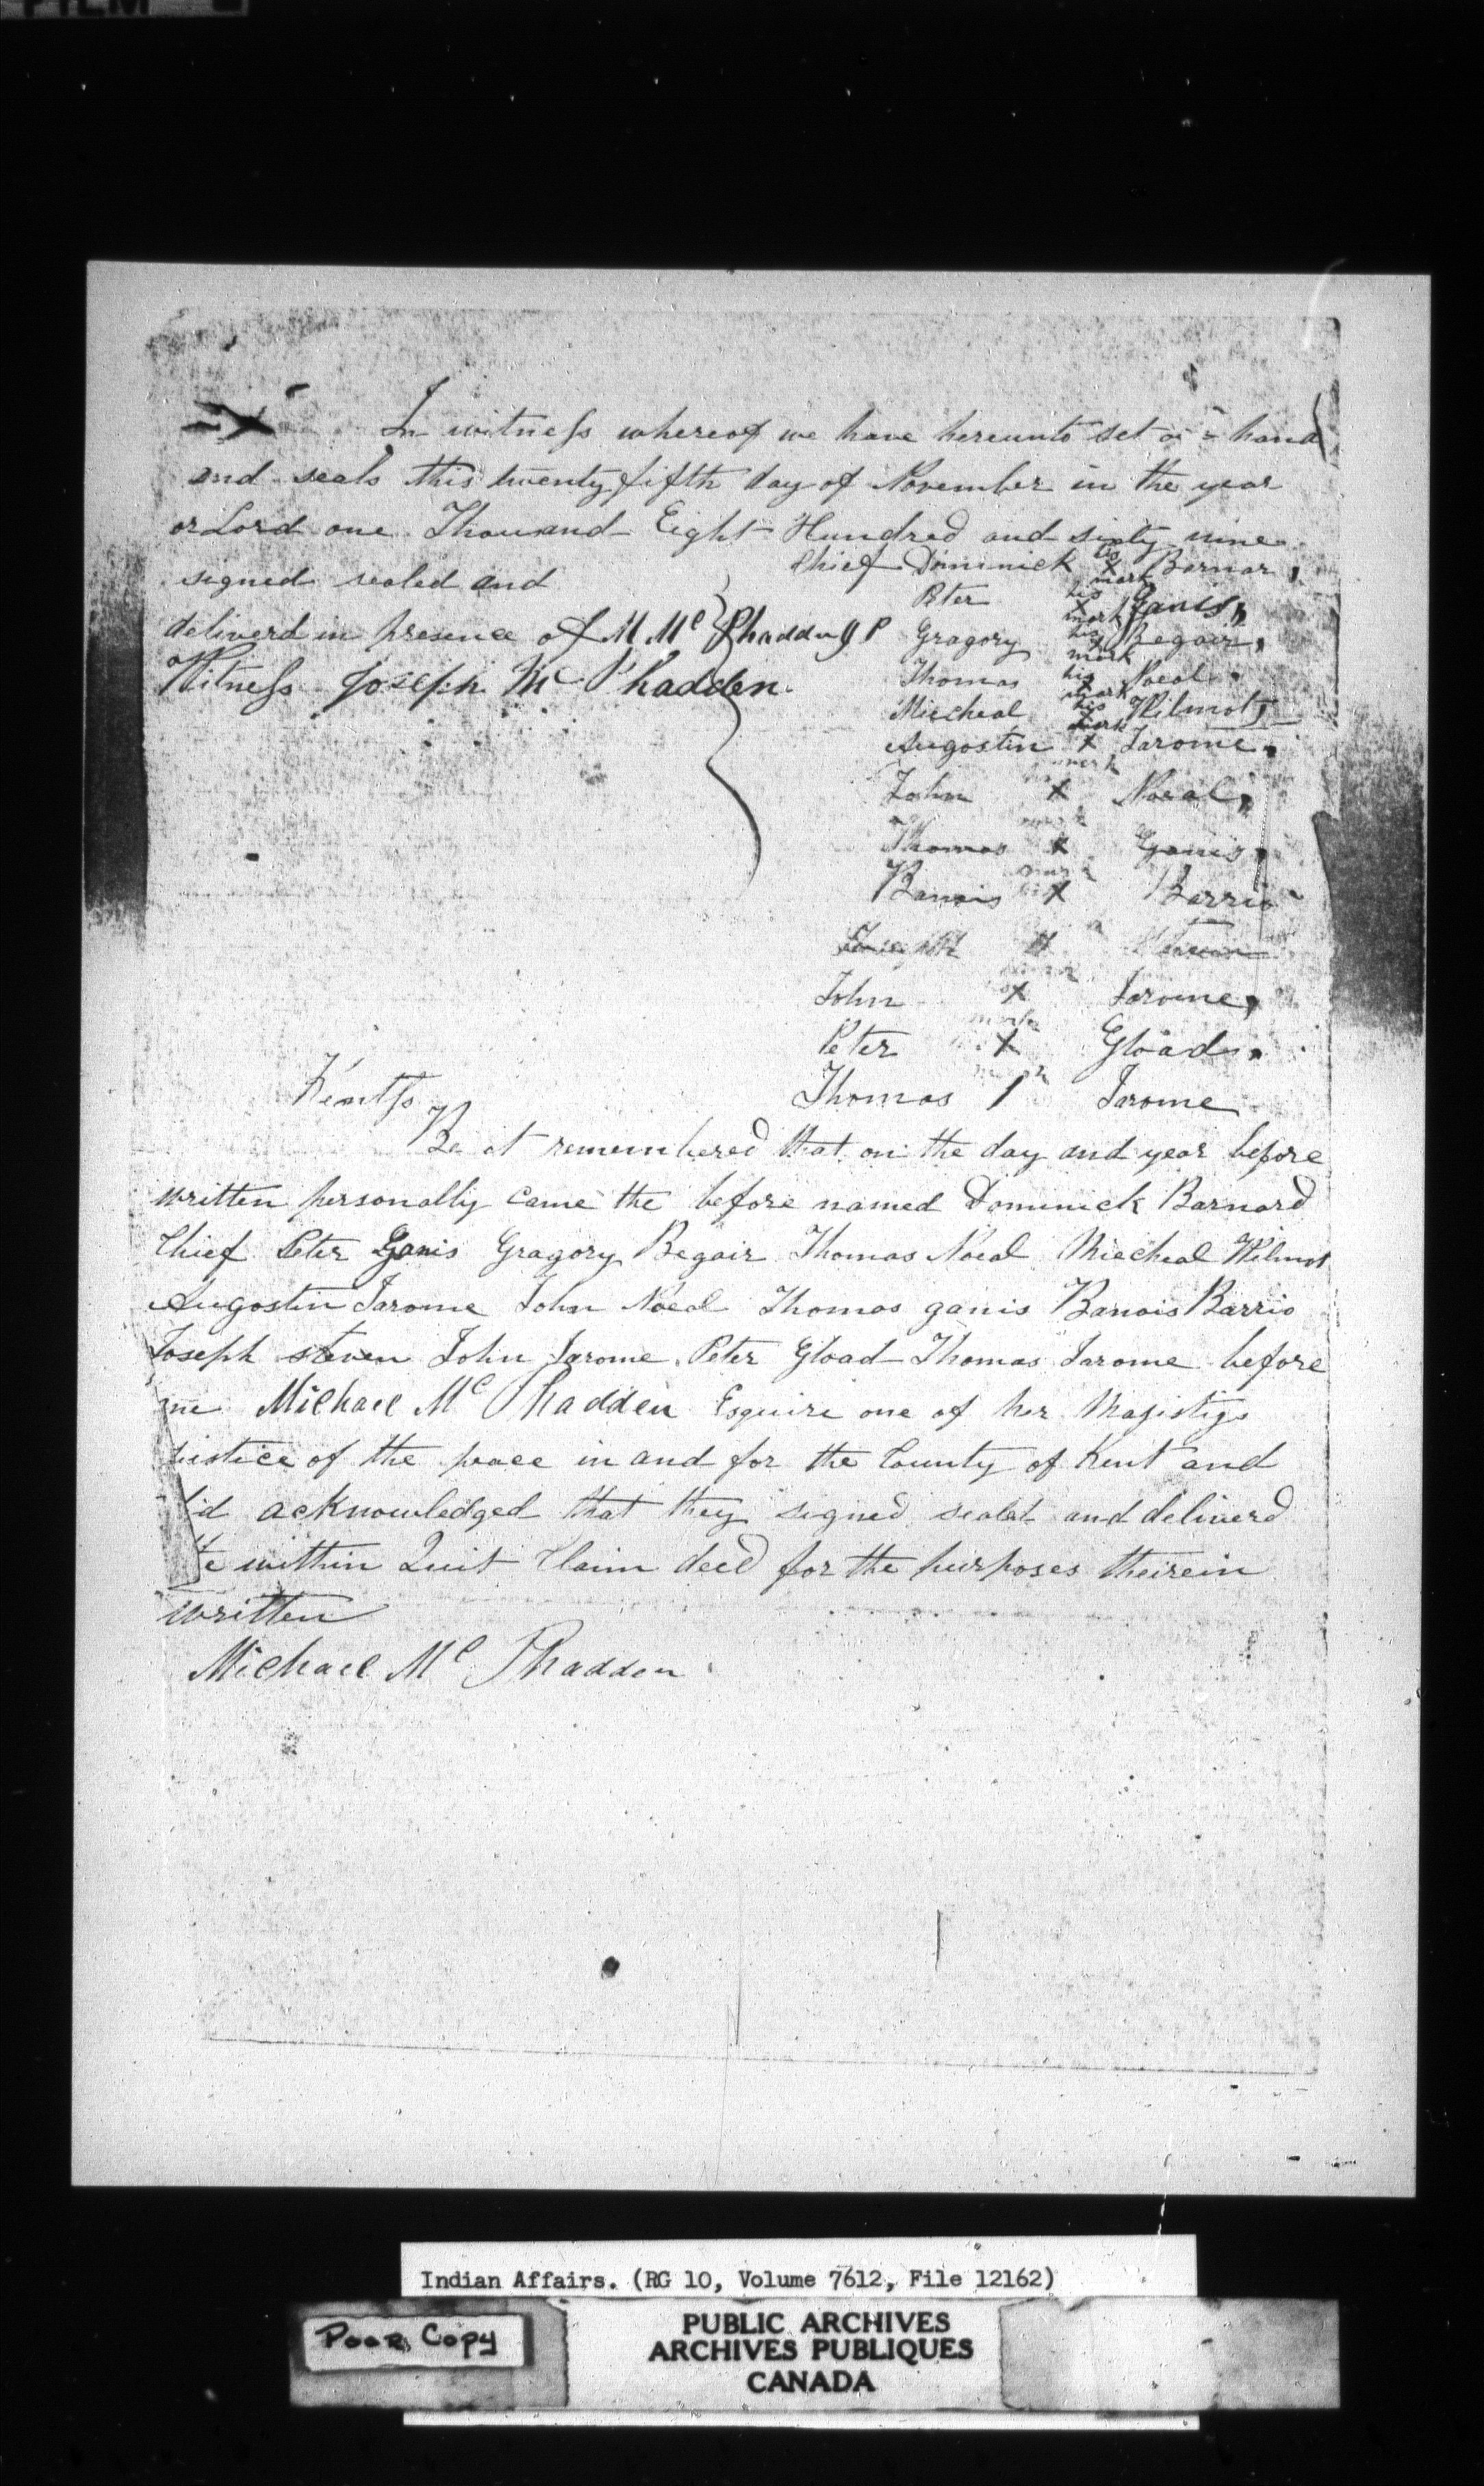 In witness whereof we have hereunto set hand
and seals this twenty fifth day of November in the year
or Lord one Thousand Eight Hundred and sixty nine
signed sealed and
deliverd in presence of M Mc Phadden J P
Witness Joseph Mc Phadden
Chief Dominick his X mark Bernar
Peter his X mark Ganis
Gragory his X mark Begair
Thomas his X mark Noeal
Miecheal his X mark Wilmot
Augostin X mark Jarome
John his X mark Noeal
Thomas X mark Ganis
Banois his X Barrio
Joseph X Steven
John X mark Jarome
Peter X mark Gload
Thomas Jarome
Kent Ss
Be it remembered that on the day and year before
written personally came the before named Dominick Barnard
Chief Peter Ganis Gragory Begair Thomas Noeal Miecheal Wilmot
Augostin Jarome John Noeal Thomas ganis Banois Barrio
Joseph steven John Jarome Peter Gload Thomas Jarome before
me Michael Mc Phadden Esquire one of her Magistys
justice of the peace in and for the County of Kent and
did acknowledged that they signed sealed and deliverd
the within Quit Claim deed for the purposes theirein
written
Michael Mc Phadden
Indian Affairs. (RG 10, Volume 7612, File 12162)
Poor Copy
PUBLIC ARCHIVES
ARCHIVES PUBLIQUES
CANADA